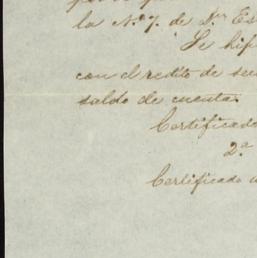 la N.º 7. de D.n Es
Se hip
con el redito de
saldo de cuenta.
Certificado
2.a
Certificado